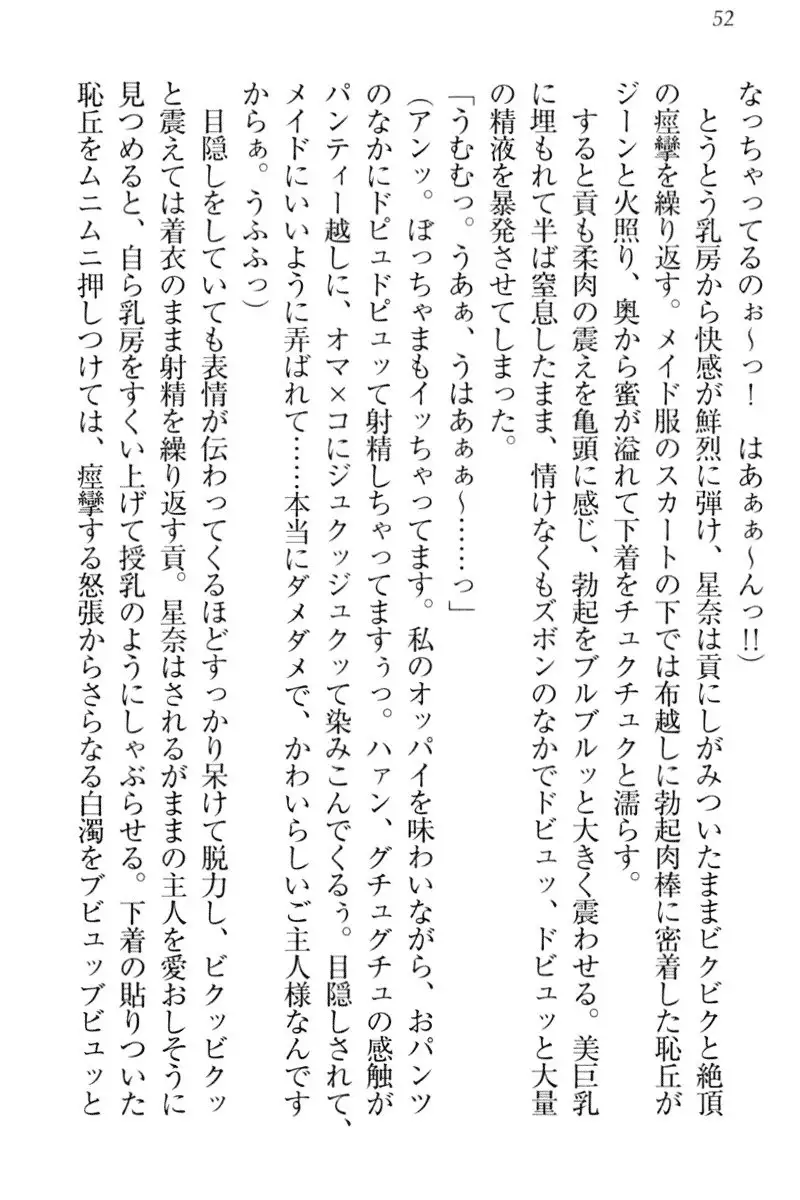 52
なっちゃってるのぉ～っ！　はあぁぁ～んっ!!）
　とうとう乳房から快感が鮮烈に弾け、星奈は貢にしがみついたままビクビクと絶頂
の痙攣を繰り返す。メイド服のスカートの下では布越しに勃起肉棒に密着した恥丘が
ジーンと火照り、奥から蜜が溢れて下着をチュクチュクと濡らす。
　すると貢も柔肉の震えを亀頭に感じ、勃起をブルブルッと大きく震わせる。美巨乳
に埋もれて半ば窒息したまま、情けなくもズボンのなかでドビュッ、ドビュッと大量
の精液を暴発させてしまった。
「うむむっ。うあぁ、うはあぁぁ～……っ」
（アンッ。ぼっちゃまもイッちゃってます。私のオッパイを味わいながら、おパンツ
のなかにドピュドピュッて射精しちゃってますぅっ。ハァン、グチュグチュの感触が
パンティー越しに、オマ×コにジュクッジュクッて染みこんでくるぅ。目隠しされて、
メイドにいいように弄ばれて……本当にダメダメで、かわいらしいご主人様なんです
からぁ。うふふっ）
　目隠しをしていても表情が伝わってくるほどすっかり呆けて脱力し、ビクッビクッ
と震えては着衣のまま射精を繰り返す貢。星奈はされるがままの主人を愛おしそうに
見つめると、自ら乳房をすくい上げて授乳のようにしゃぶらせる。下着の貼りついた
恥丘をムニムニ押しつけては、痙攣する怒張からさらなる白濁をブビュッブビュッと